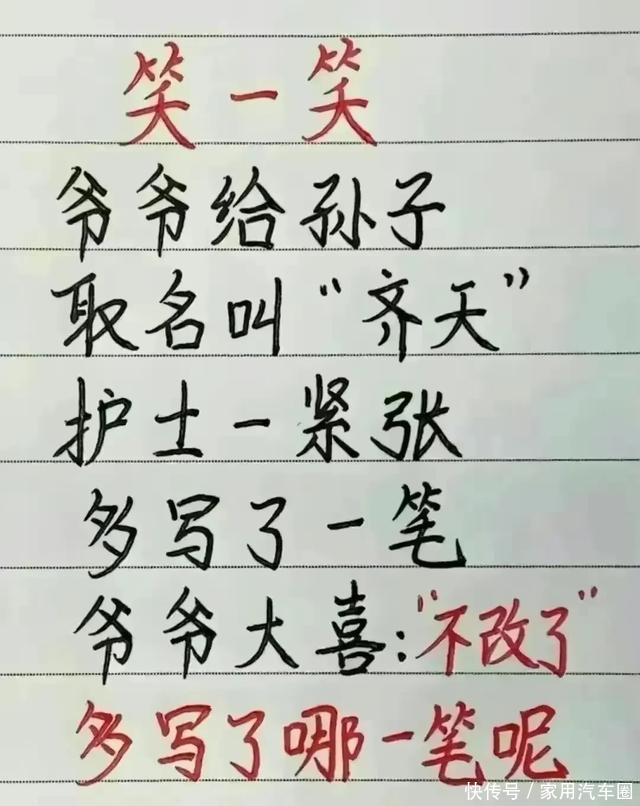 笑一笑
爷爷给孙子
取名叫“齐天”
护士一紧张
多写了一笔
爷爷大喜:“不改了”
多写了哪一笔呢
快传号/家用汽车圈